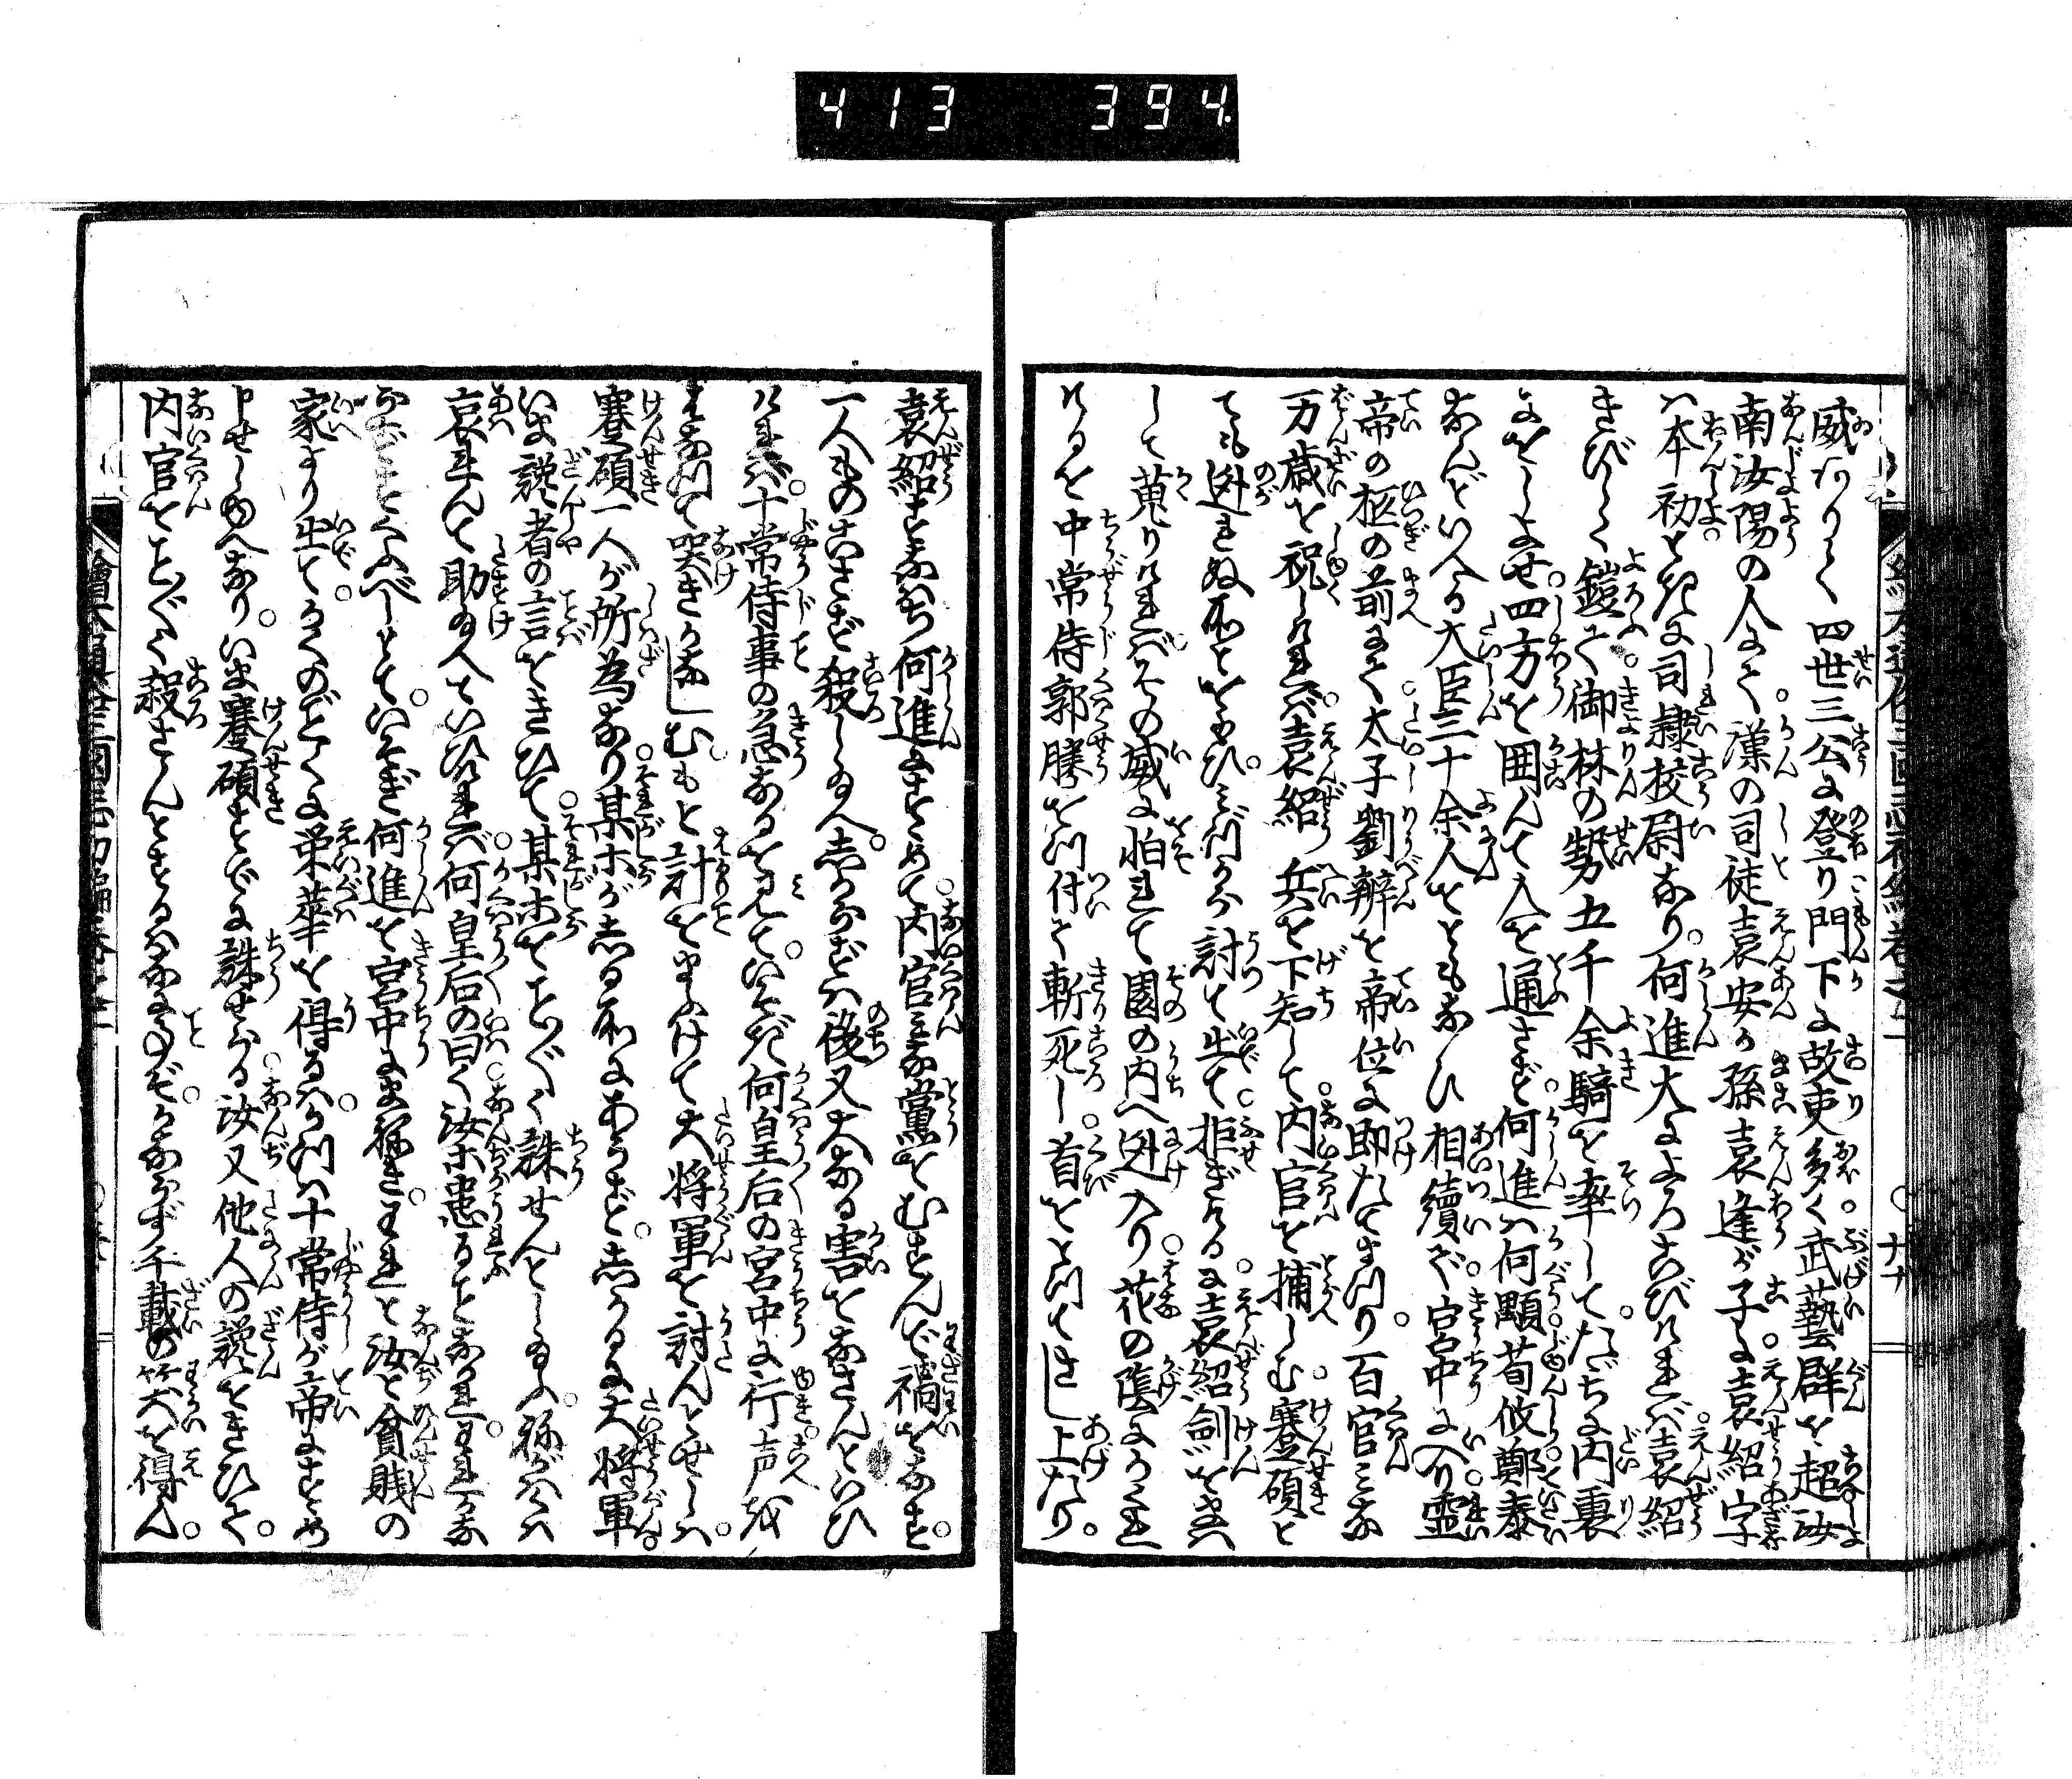 413 394
威ありて四世三公に登り門下に故吏多く。武藝群を超汝
南汝陽の人にて。漢の司徒袁安が孫袁逢が子に。袁紹字
は本初とて。時に司隷校尉なり。何進大によろこびければ。袁紹
きびしく鎧て。御林の勢五千余騎を率して。たゞちに内裏
におしよせ。四方を囲んで人を通さず。何進は何顒。荀攸。鄭泰
なんどいへる大臣三十余人をともなひ相續で。宮中に入り。霊
帝の柩の前にて。太子劉辨を帝位に即たてまつり。百官みな
万歳を祝しければ。袁紹兵を下知して。内官を捕しむ。蹇碩と
ても逃れぬ所とおもひ。みづから討て出て。拒ぎける に。袁紹剣をぬい
して蒐りければ。その威に怕れて園の内へ迯入り。花の蔭にかくれ
けるを中常侍郭勝をひ付て斬死し。首をとつてさし上たり。
袁紹すなはち何進にすゝめて。内官みな黨をむすんで禍をなす。
一人ものこさず殺し給へ。しからずは後又大なる害をなさんといひ
ければ。十常侍事の急なるを見て。いそぎ何皇后の宮中に行声を
はなつて哭きかなしむ。もと計をまふけて大将軍を討んとせしは。
蹇碩一人が所為なり。某ホがしる所にあらず。しかるに大将軍。
いま讒者の言をきひて。某ホをこと〲く誅せんとし給ふ。ねがはくは
哀れんで助給へといひければ。何皇后の曰く。汝ホ患ることなかれ。われかな
らずすくふべしとて。いそぎ何進を宮中にまねき。われと汝と貧賎の
家より出て。かくのごとくに栄華を得るは。かつは十常侍が帝にすゝめ
申せしゆへなり。いま蹇碩すでに誅せらる。汝又他人の讒をきひて。
内官をこと〲く殺さんとするはなに事ぞ。かならず千載の笑を得ん。